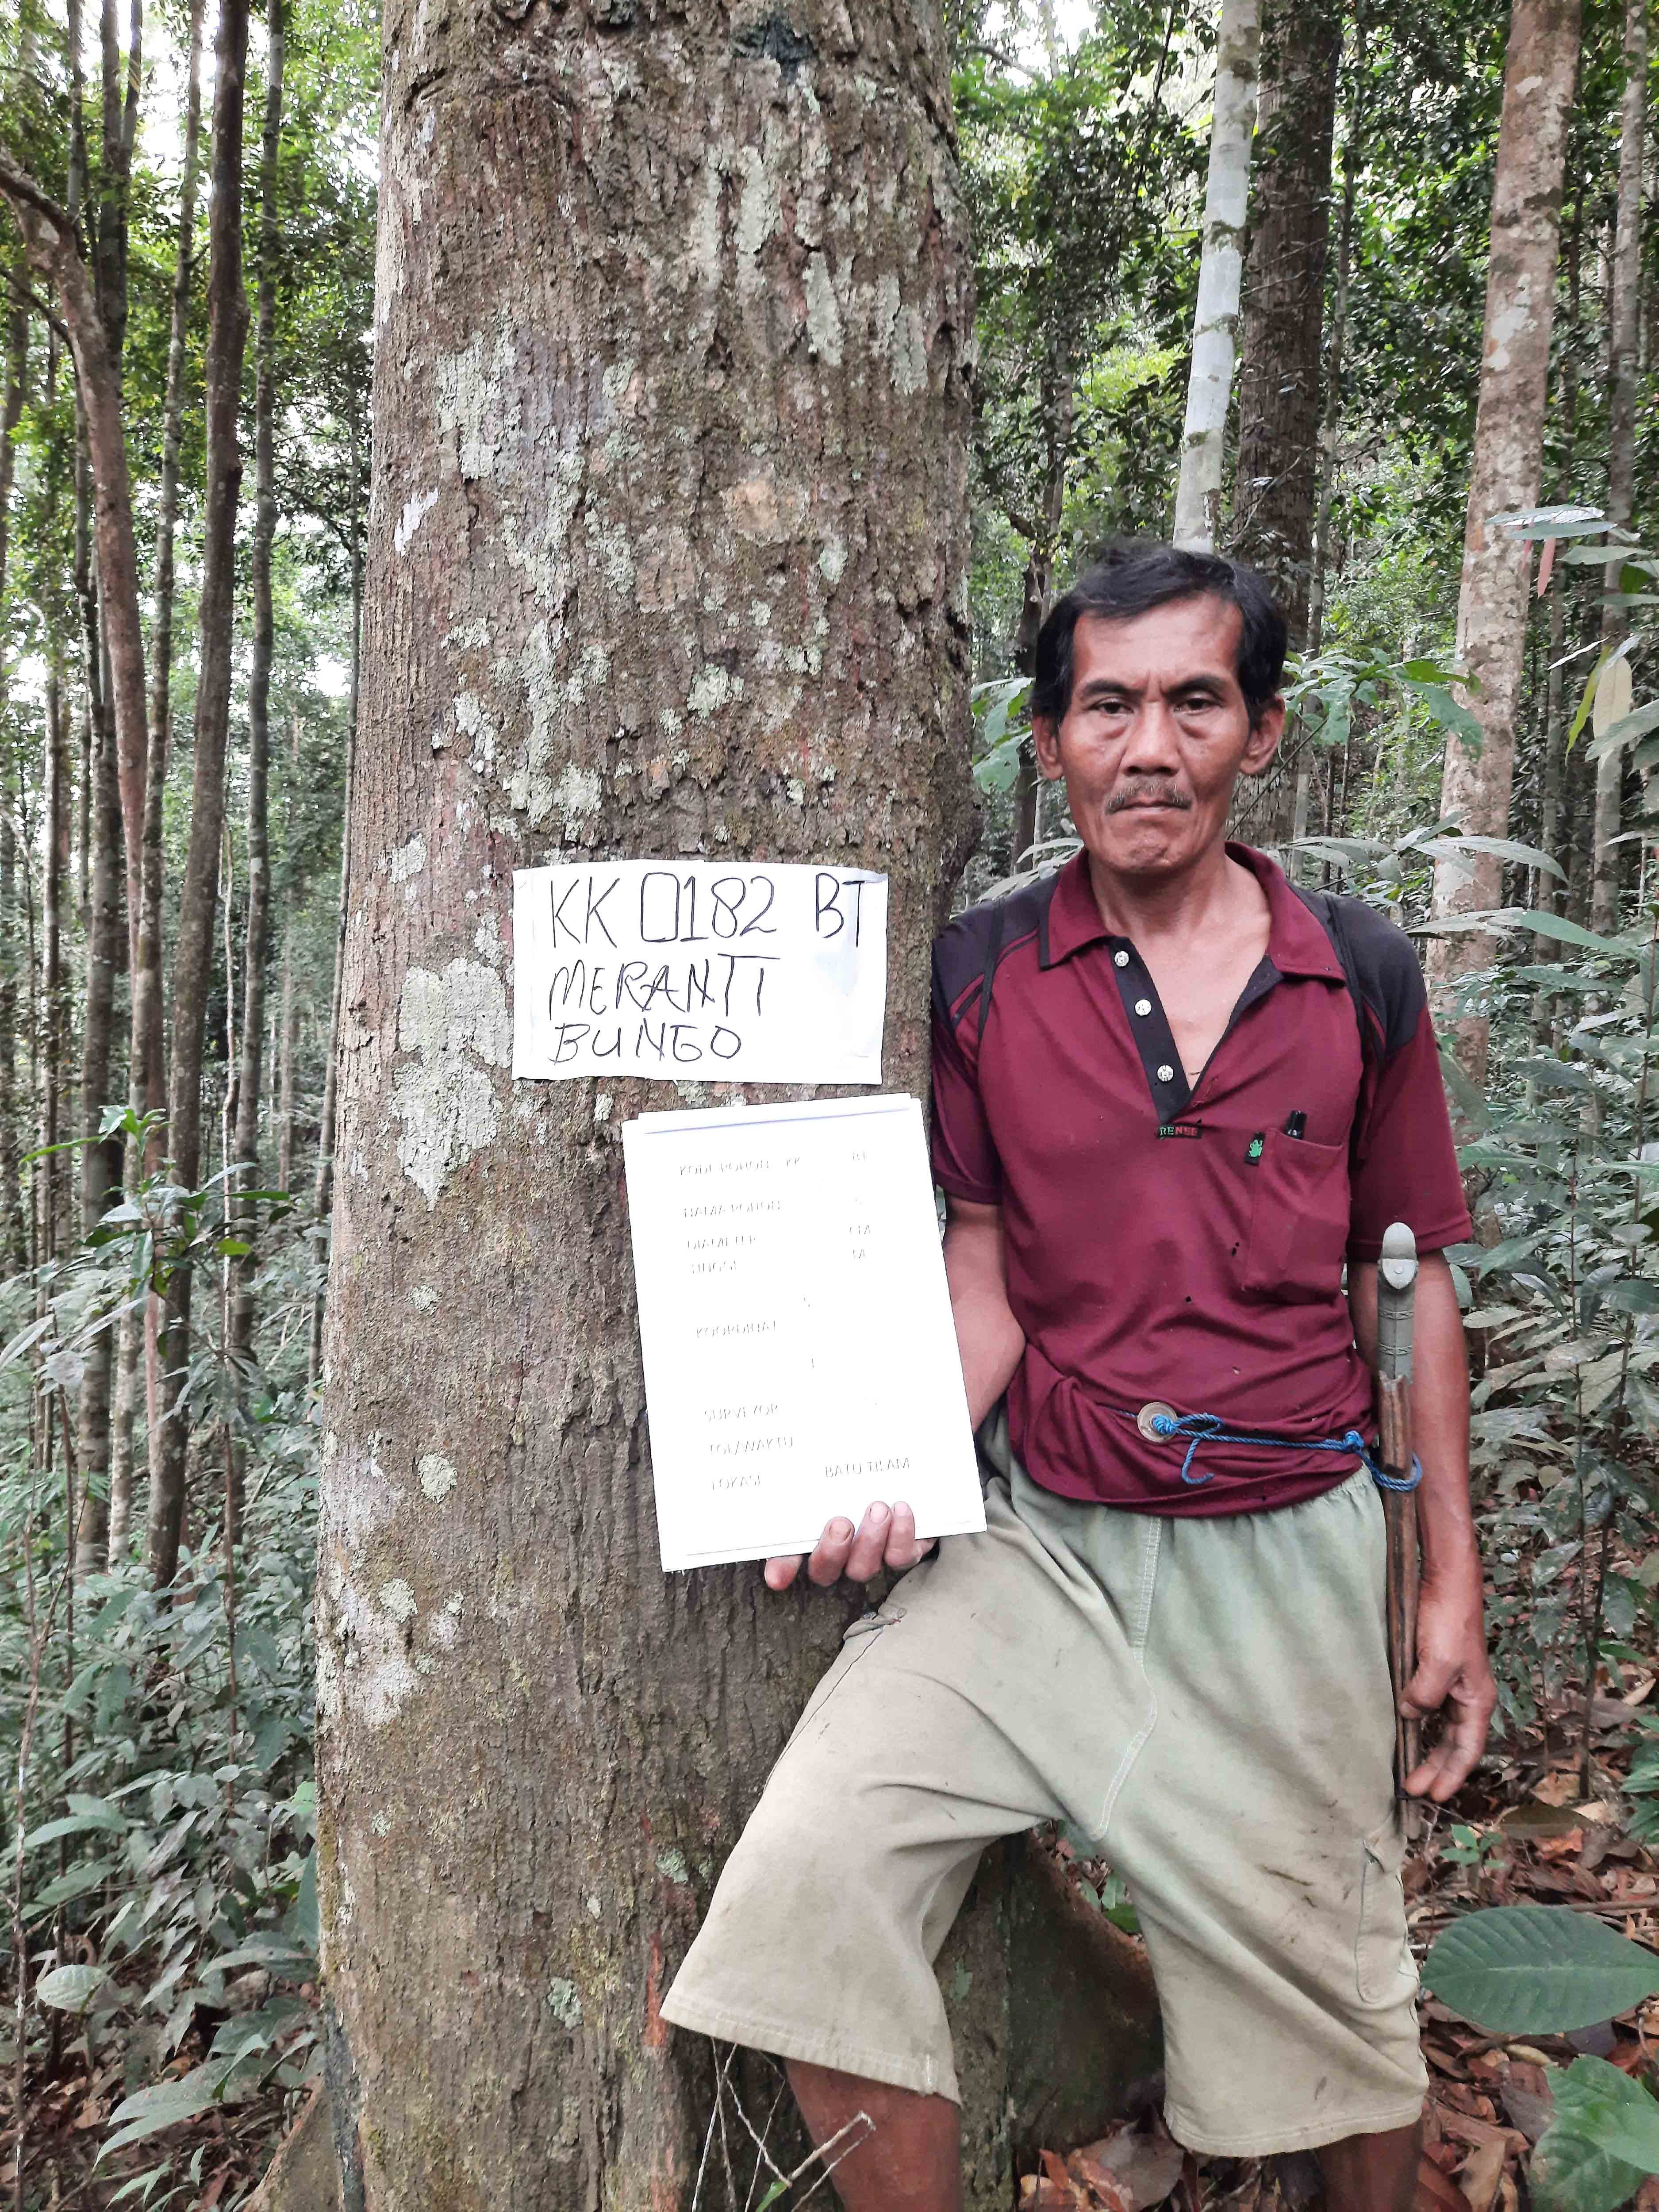 KK 0182 BT
MERANTI
BUNGO
KODE POHON KK BT
NAMA POHON
DIAMETER CM
TINGGI M
S
KOORDINAT
SURVEYOR
TGL/WAKTU
LOKASI BATU TILAM
RENEE